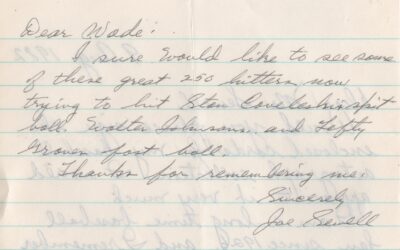 Dear Wade:
I sure would like to see some
of these great 250 hitters now
trying to hit Stan Coveleskis spit
ball. Walter Johnsons and Lefty
Groves fast ball.
Thanks for remembering me.
Sincerely
Joe Sewell